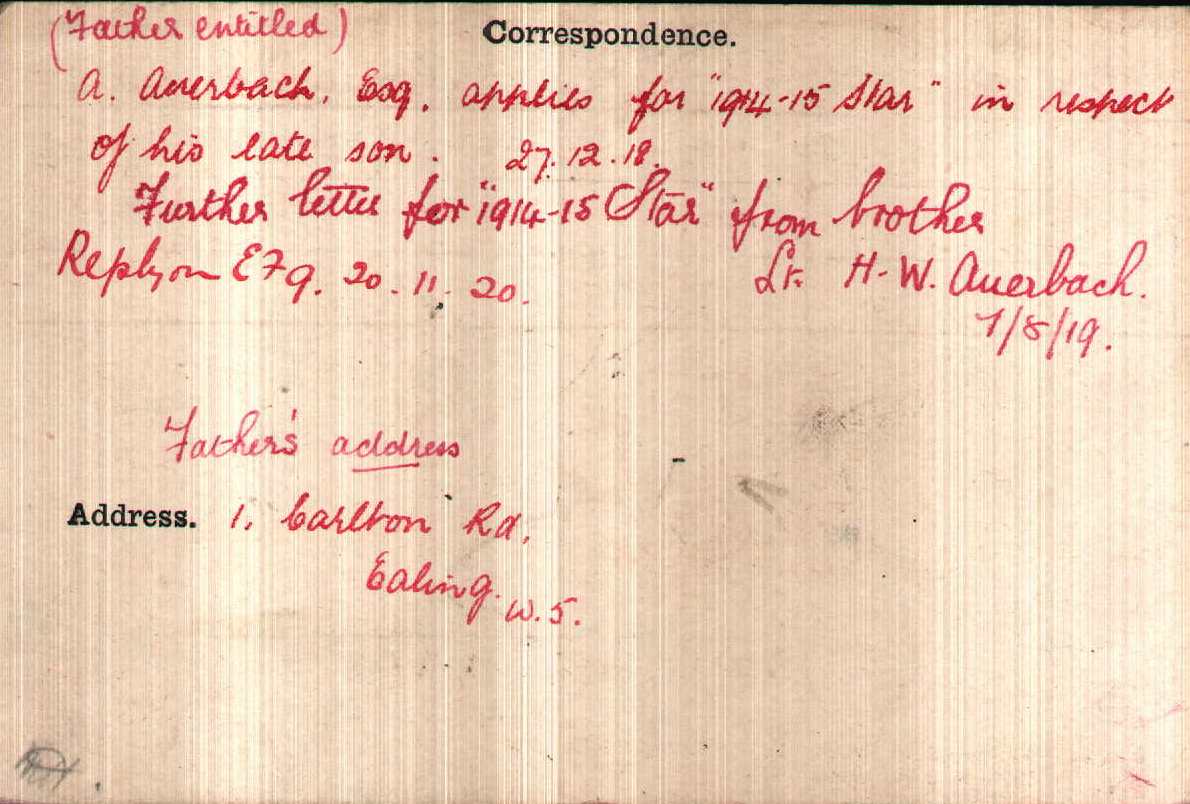 (Father entitled)
Correspondence.
A. Auerbach, Esq. applies for "1914-15 Star" in respect
of his late son. 27.12.18.
Further letter for "1914-15 Star" from brother
Reply on EF9. 20.11.20.
Lt. H. W. Auerbach.
7/8/19.
Father's address
Address. 1, Carlton Rd,
Ealing.
W.5.